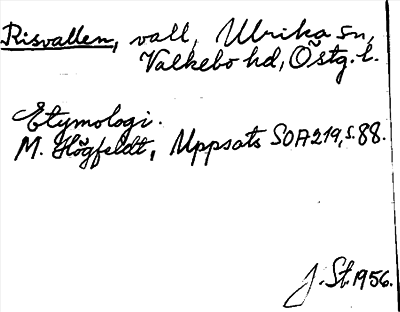 Risvallen, vall, Ulrika sn,
Valkebo hd, Östg. l.
Etymologi.
M. Högfeldt, Uppsats SOA219, s. 88.
J. St. 1956.